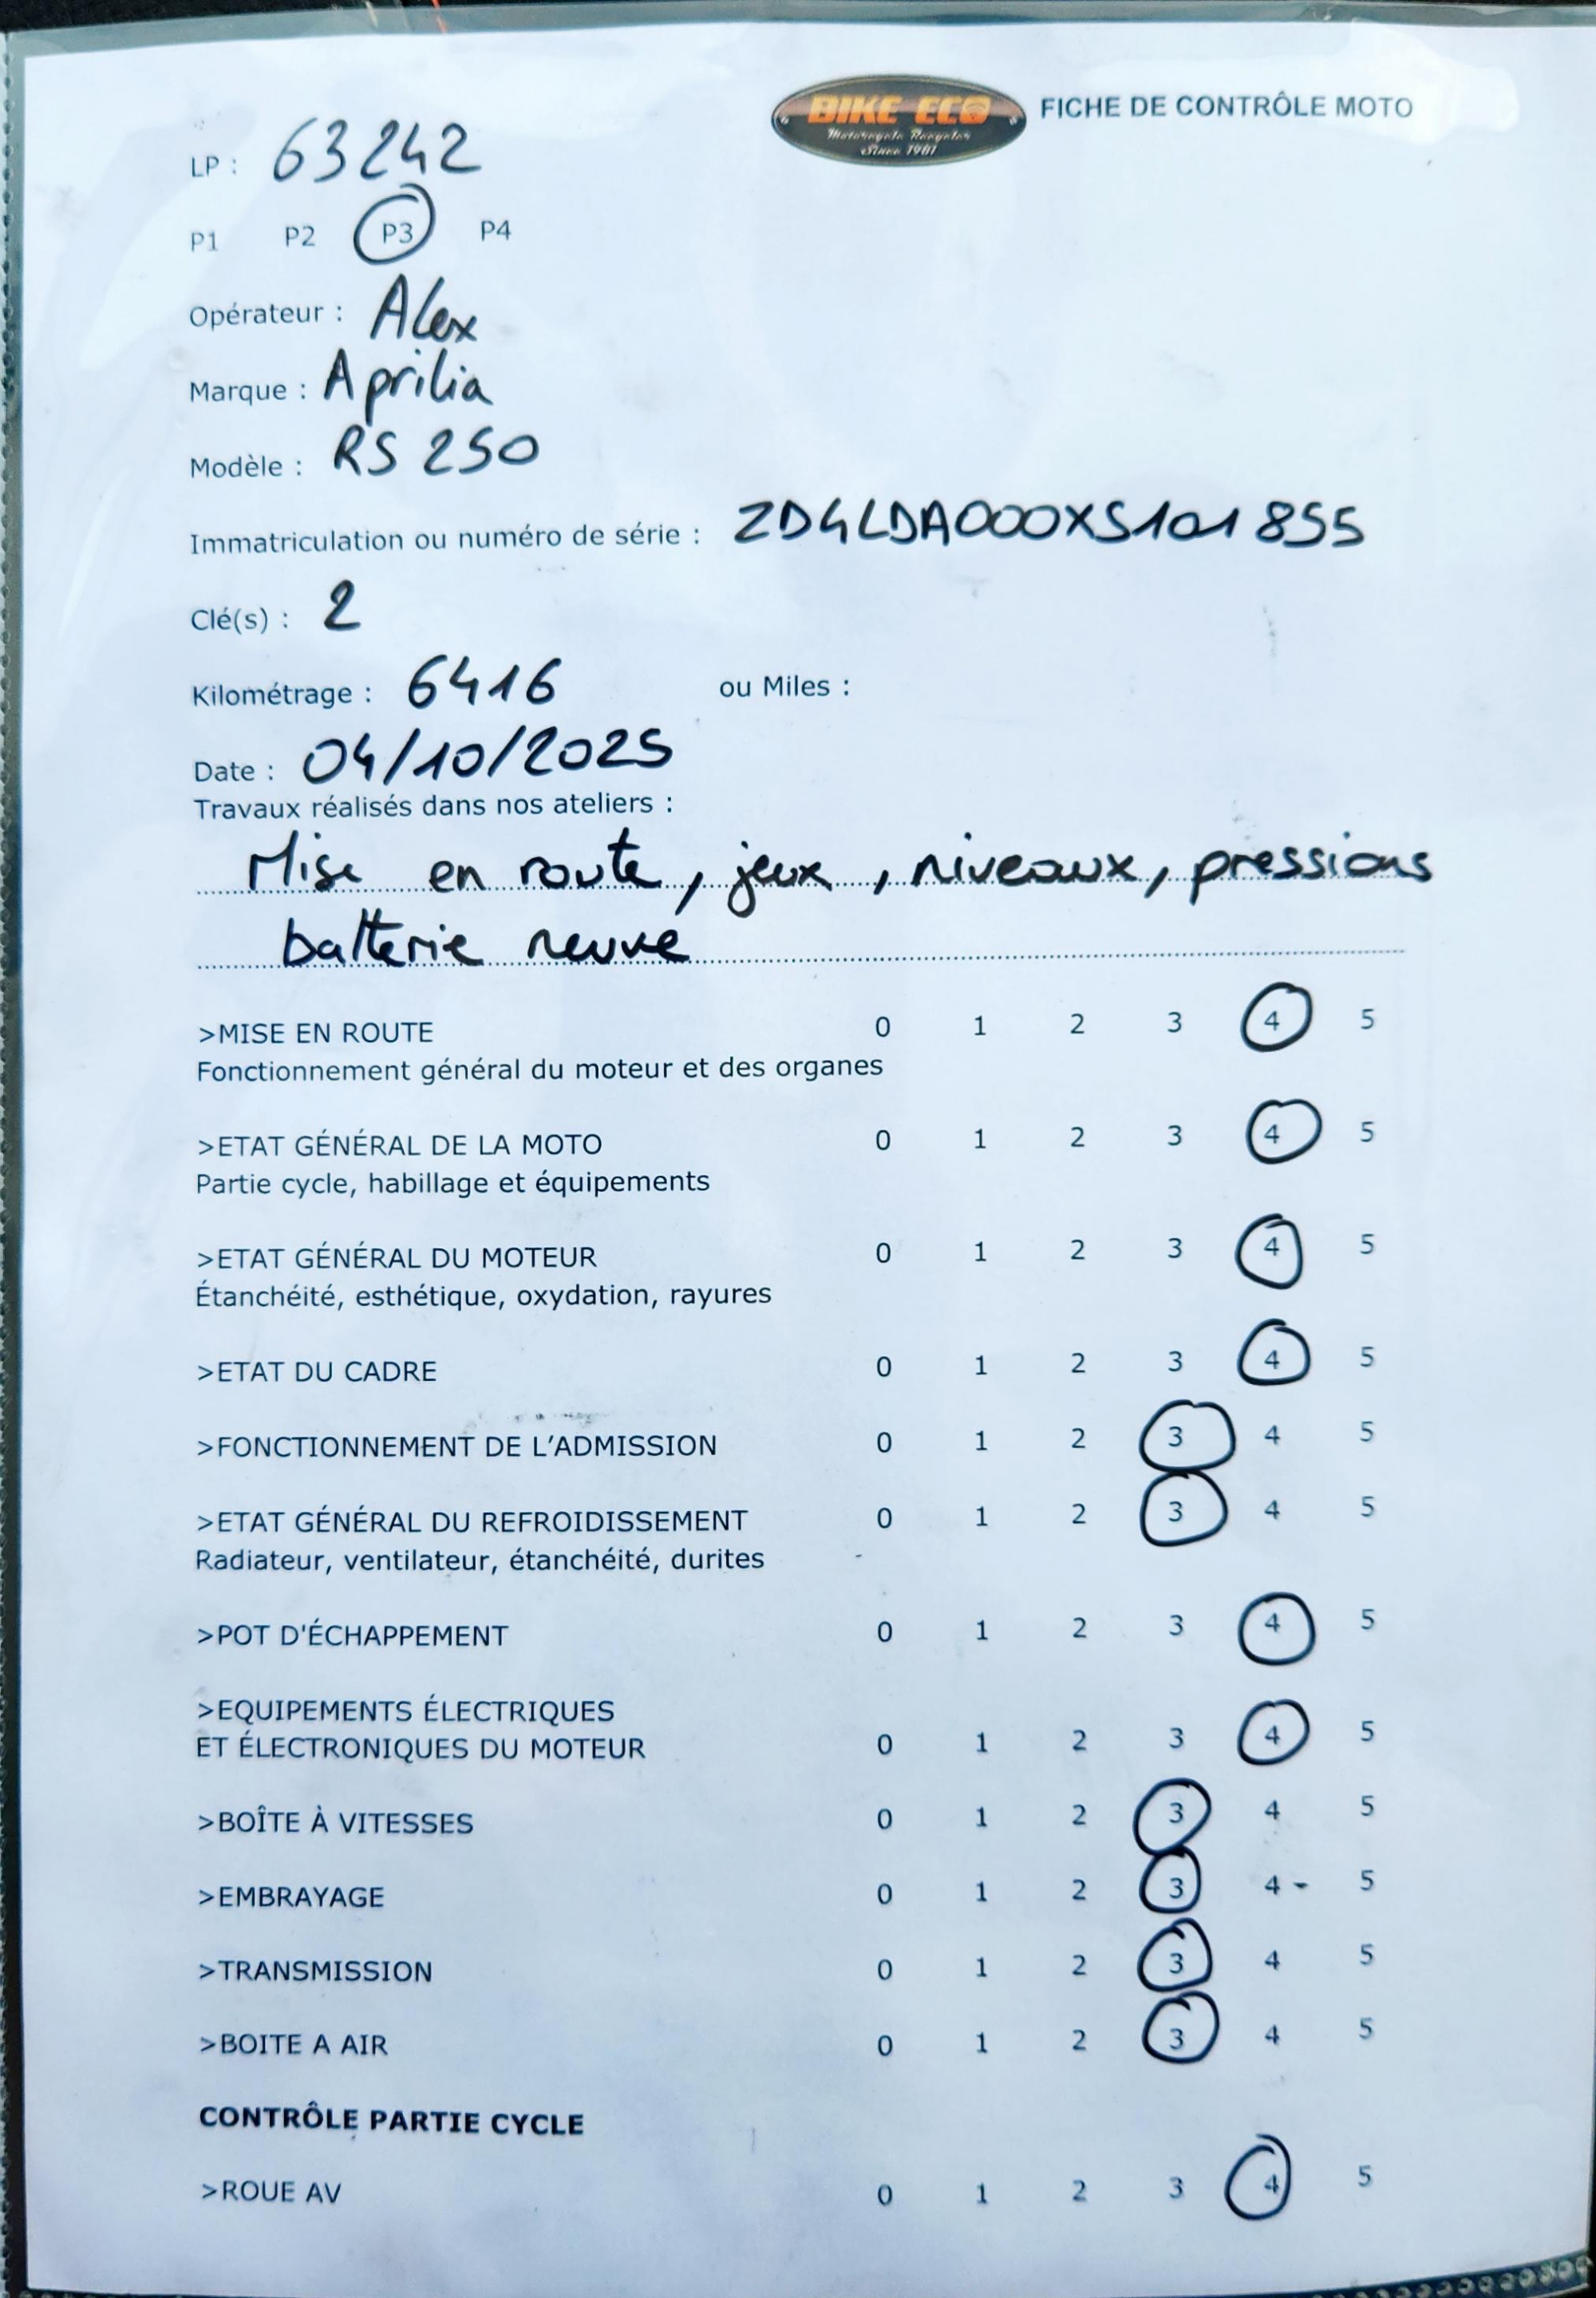 BIKE ECO
Motorcycle Recycler
Since 1981
FICHE DE CONTRÔLE MOTO
LP : 63242
P1 P2 P3 P4
Opérateur : Alex
Marque : Aprilia
Modèle : RS 250
Immatriculation ou numéro de série : ZD4LDA000XS101855
Clé(s) : 2
Kilométrage : 6416 ou Miles :
Date : 04/10/2025
Travaux réalisés dans nos ateliers :
Mise en route, jeux, niveaux, pressions
batterie neuve
>MISE EN ROUTE 0 1 2 3 4 5
Fonctionnement général du moteur et des organes
>ETAT GÉNÉRAL DE LA MOTO 0 1 2 3 4 5
Partie cycle, habillage et équipements
>ETAT GÉNÉRAL DU MOTEUR 0 1 2 3 4 5
Étanchéité, esthétique, oxydation, rayures
>ETAT DU CADRE 0 1 2 3 4 5
>FONCTIONNEMENT DE L'ADMISSION 0 1 2 3 4 5
>ETAT GÉNÉRAL DU REFROIDISSEMENT 0 1 2 3 4 5
Radiateur, ventilateur, étanchéité, durites
>POT D'ÉCHAPPEMENT 0 1 2 3 4 5
>EQUIPEMENTS ÉLECTRIQUES
ET ÉLECTRONIQUES DU MOTEUR 0 1 2 3 4 5
>BOÎTE À VITESSES 0 1 2 3 4 5
>EMBRAYAGE 0 1 2 3 4 5
>TRANSMISSION 0 1 2 3 4 5
>BOITE A AIR 0 1 2 3 4 5
CONTRÔLE PARTIE CYCLE
>ROUE AV 0 1 2 3 4 5